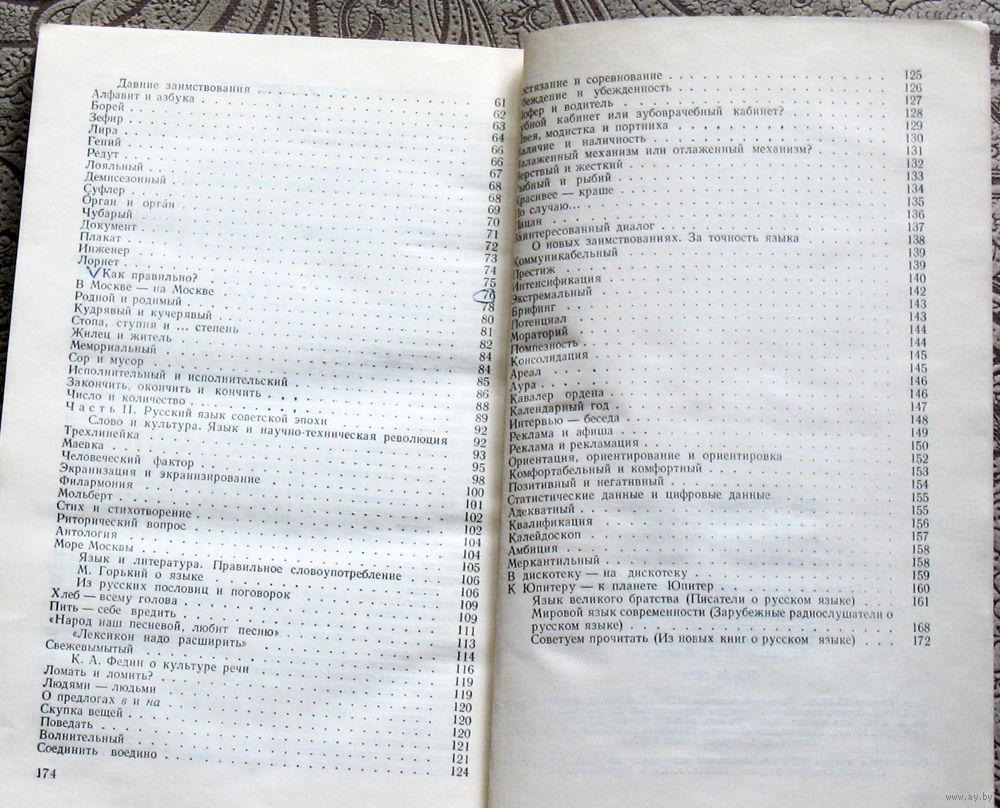 Давние заимствования 61
Алфавит и азбука 62
Борей 63
Зефир 64
Лира 66
Гений 66
Редут 67
Лояльный 68
Демисезонный 68
Суфлер 69
Орган и орга́н 70
Чубарый 71
Документ 72
Плакат 73
Инженер 74
Лорнет 75
Как правильно? 76
В Москве — на Москве 78
Родной и родимый 80
Кудрявый и кучерявый 81
Стопа, ступня и ... степень 82
Жилец и житель 84
Мемориальный 84
Сор и мусор 85
Исполнительный и исполнительский 86
Закончить, окончить и кончить 88
Число и количество 89
Часть II. Русский язык советской эпохи
Слово и культура. Язык и научно-техническая революция 92
Трехлинейка 92
Маевка 93
Человеческий фактор 95
Экранизация и экранизирование 98
Филармония 100
Мольберт 101
Стих и стихотворение 102
Риторический вопрос 102
Антология 104
Море Москвы 104
Язык и литература. Правильное словоупотребление 105
М. Горький о языке 106
Из русских пословиц и поговорок 106
Хлеб — всему голова 109
Пить — себе вредить 109
«Народ наш песневой, любит песню» 111
«Лексикон надо расширить» 113
Свежевымытый 114
К. А. Федин о культуре речи 116
Ломать и ломить? 119
Людями — людьми 119
О предлогах в и на 120
Скупка вещей 120
Поведать 121
Волнительный 121
Соединить воедино 124
174
остязание и соревнование 125
беждение и убежденность 126
офер и водитель 127
убной кабинет или зубоврачебный кабинет? 128
вея, модистка и портниха 129
аличие и наличность 130
алаженный механизм или отлаженный механизм? 131
ерствый и жесткий 132
ыбный и рыбий 133
Красивее — краше 134
По случаю... 135
Пацан 136
Заинтересованный диалог 137
О новых заимствованиях. За точность языка 138
Коммуникабельный 139
Престиж 139
Интенсификация 140
Экстремальный 142
Брифинг 143
Потенциал 143
Мораторий 144
Помпезность 144
Консолидация 145
Ареал 145
Аура 146
Кавалер ордена 146
Календарный год 147
Интервью — беседа 148
Реклама и афиша 149
Реклама и рекламация 150
Ориентация, ориентирование и ориентировка 152
Комфортабельный и комфортный 153
Позитивный и негативный 154
Статистические данные и цифровые данные 155
Адекватный 155
Квалификация 156
Калейдоскоп 157
Амбиция 158
Меркантильный 158
В дискотеку — на дискотеку 159
К Юпитеру — к планете Юпитер 160
Язык великого братства (Писатели о русском языке) 161
Мировой язык современности (Зарубежные радиослушатели о
русском языке) 168
Советуем прочитать (Из новых книг о русском языке) 172
www.ay.by